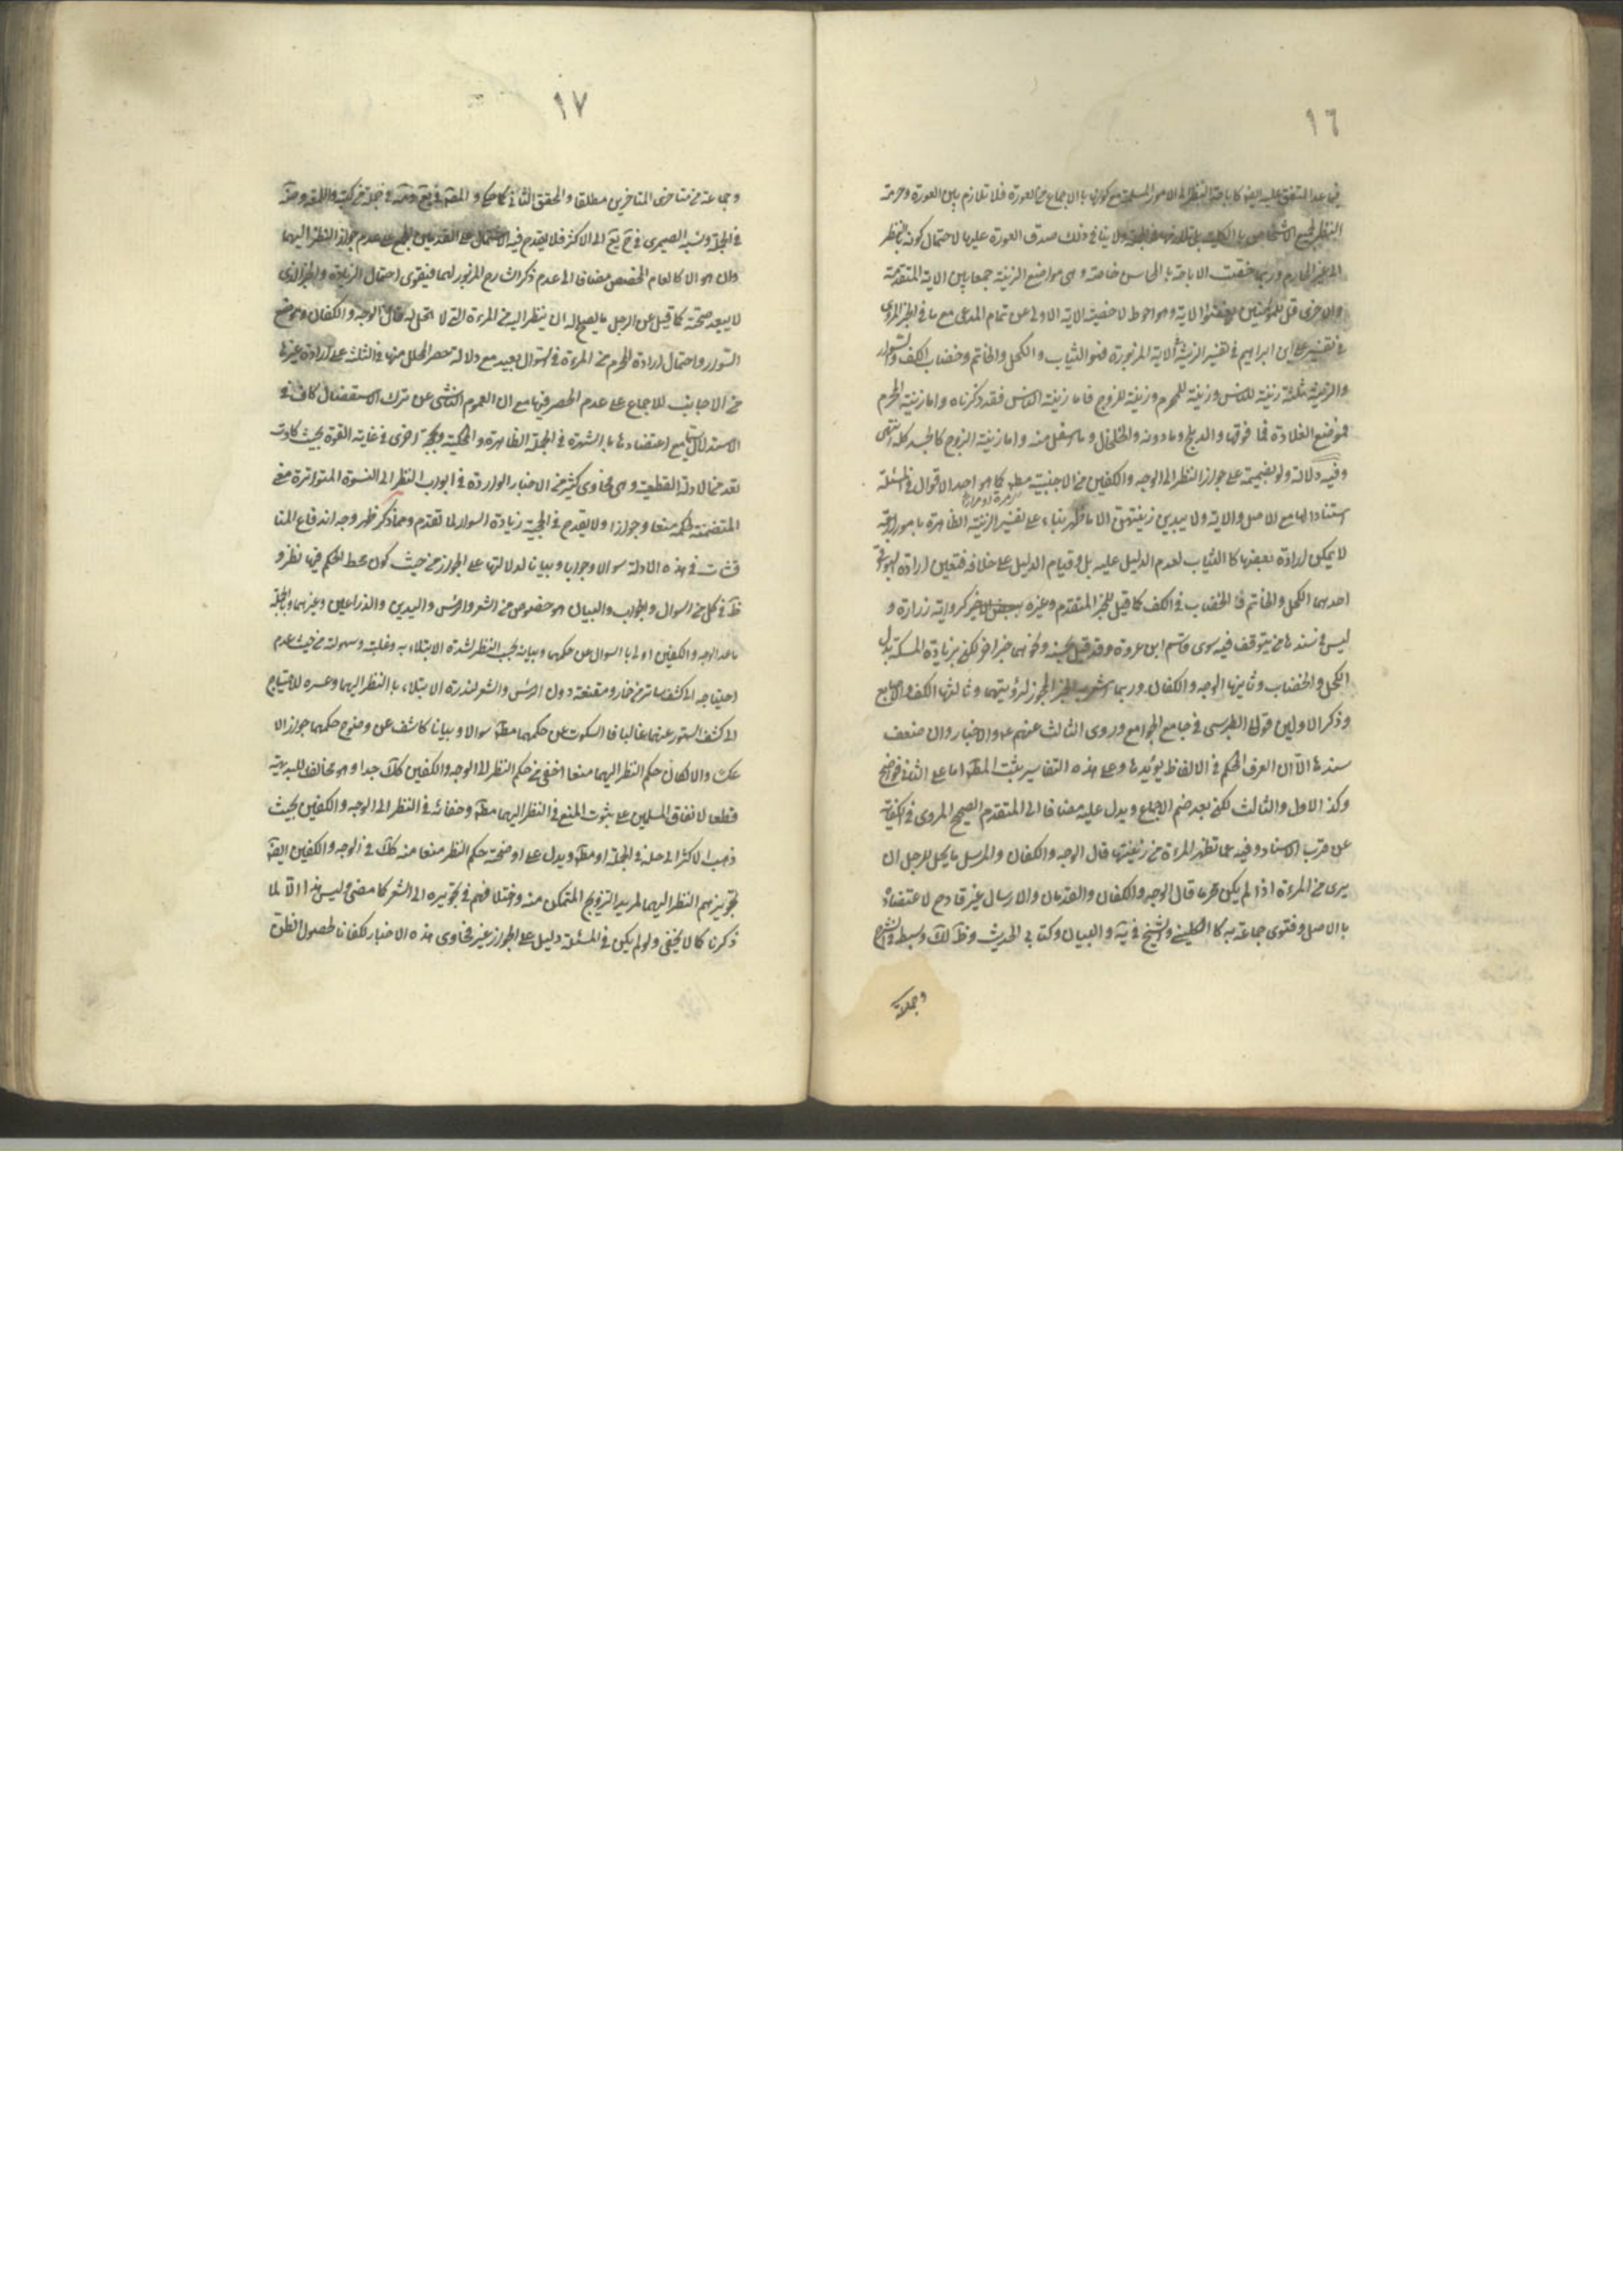 ١٦
فيما عدا المتفق عليه ايضا كاباحة النظر الى الامور المسلمة مع كونها بالاجماع من العورة فلا تلازم بين العورة وحرمة
النظر لجميع الاشخاص بالكلية بل تلازمها في الجملة ولا ينافي ذلك صدق العورة عليها لاحتمال كونه بالنظر
الى غير المحارم وربما خصت الاباحة بالمحاسن خاصة وهي مواضع الزينة جمعا بين الاية المتقدمة
والاخرى قل للمؤمنين يغضوا الاية وهو احوط لاخصية الاية الاولى عن تمام المدعى مع ما في الخبر المروي
في تفسير علي ابن ابراهيم في تفسير الزينة في الاية المزبورة فهو الثياب والكحل والخاتم وخضاب الكف والسوار
والزينة ثلثة زينة للناس وزينة للمحرم وزينة للزوج فاما زينة الناس فقد ذكرناه واما زينة المحرم
فموضع القلادة فما فوقها والدملج وما دونه والخلخال وما اسفل منه واما زينة الزوج كالجسد كله انتهى
وفيه دلالة ولو بضميمة على جواز النظر الى الوجه والكفين من الاجنبية مطلقا كما هو احد الاقوال في المسئلة
استنادا لها مع الاصل والاية ولا يبدين زينتهن الا ما ظهر بناء على تفسير الزينة الظاهرة بامور اربعة
لا يمكن ارادة بعضها كالثياب لعدم الدليل عليه بل وقيام الدليل على خلافه فتعين ارادة البواقي
احدها الكحل والخاتم فالخضاب في الكف كما قيل للخبر المتقدم وغيره كرواية زرارة و
ليس في سندها من يتوقف فيه سوى قاسم ابن عروة وقد قيل بحسنه ونحوهما خبر اخر لكن بزيادة المسكة بدل
الكحل والخضاب وثانيها الوجه والكفان وربما اشعر به الخبر المجوز لرؤيتهما وثالثها الكف والاصابع
وذكر الاولين قولا الطبرسي في جامع الجوامع وروى الثالث عنهم ع والاخبار وان ضعف
سندها الا ان العرف المحكم في الالفاظ يؤيدها وعلى هذه التفاسير يثبت المطلوب اما على الثاني فواضح
وكذا الاول والثالث لكن بعد ضم الاجماع ويدل عليه مضافا الى المتقدم الصحيح المروي في الكفاية
عن قرب الاسناد وفيه عما تظهر المرءة من زينتها قال الوجه والكفان والمرسل ما يحل للرجل ان
يرى من المرءة اذا لم يكن محرما قال الوجه والكفان والقدمان والارسال غير قادح لاعتضاده
بالاصل وفتوى جماعة به كالكليني والشيخ في ية والتبيان وكتابي الحديث وظ لك وسبطه في الشرح
وجماعة
١٧
وجماعة من متاخري المتاخرين مطلقا والمحقق الثاني كما حكى والمصنف في يع وعد في جملة من كتبه واللمعة وضة
في الجملة ونسبه الصيمري في ح يع الى الاكثر فلا يقدح فيه الاشتمال على القدمين المجمع على عدم جواز النظر اليهما
وان هو الا كالعام المخصص مضافا الى عدم ذكر الشارح المزبور لهما فيقوى احتمال الزيادة والخبر الذي
لا يبعد صحته كما قيل عن الرجل ما يصلح له ان ينظر اليه من المرءة التي لا تحل له فقال الوجه والكفان وموضع
السوار واحتمال ارادة المحرم من المرءة في السؤال بعيد مع دلالة حصر المحلل منها في الثلثة على ارادة غيرها
من الاجانب للاجماع على عدم الحصر فيها مع ان العموم الناشي عن ترك الاستفصال كاف في
الاستدلال سيما مع اعتضادها بالشهرة في الجملة الظاهرة والمحكية وبحجة اخرى في غاية القوة بحيث كادت
تعد من الادلة القطعية وهي فحاوى كثير من الاخبار الواردة في ابواب النظر الى النسوة المتواترة معنى
المتضمنة لحكمه منعا وجوازا ولا يقدح في الحجية زيادة السوار لما تقدم ومما ذكر ظهر وجه اندفاع المنا
قشات في هذه الادلة سوالا وجوابا وبيانا لدلالتها على الجواز من حيث كون محط الحكم فيها نظر و
ظ في كل من السوال والجواب والبيان هو خصوص من الشعر والراس واليدين والذراعين وغيرهما وبالجملة
ما عدا الوجه والكفين اولى بالسوال عن حكمها وبيانه بحسب النظر لشدة الابتلاء به وغلبته وسهولته من حيث عدم
احتياجه الى كشف ساتر من خمار ومقنعة دون الراس والشعر لندرة الابتلاء بالنظر اليهما وعسره للاحتياج
الى كشف الستور عنهما غالبا فالسكوت عن حكمهما مط سوالا وبيانا كاشف عن وضوح حكمهما جوازا لا
عكسه والا لكان حكم النظر اليهما منعا اخفى من حكم النظر الى الوجه والكفين كك جدا وهو مخالف للبديهة
قطعا لاتفاق المسلمين على ثبوت المنع في النظر اليهما مط وخفائه في النظر الى الوجه والكفين بحيث
ذهب الاكثر الى حله في الجملة او مط ويدل على اوضحية حكم النظر منعا منه كك في الوجه والكفين ايضا
تجويزهم النظر اليهما لمريد التزويج المتمكن منه واختلافهم في تجويزه الى الشعر كما مضى وليس هذا الا لما
ذكرنا كما لا يخفى ولو لم يكن في المسئلة دليل على الجواز غير فحاوى هذه الاخبار لكفانا لحصول الظن